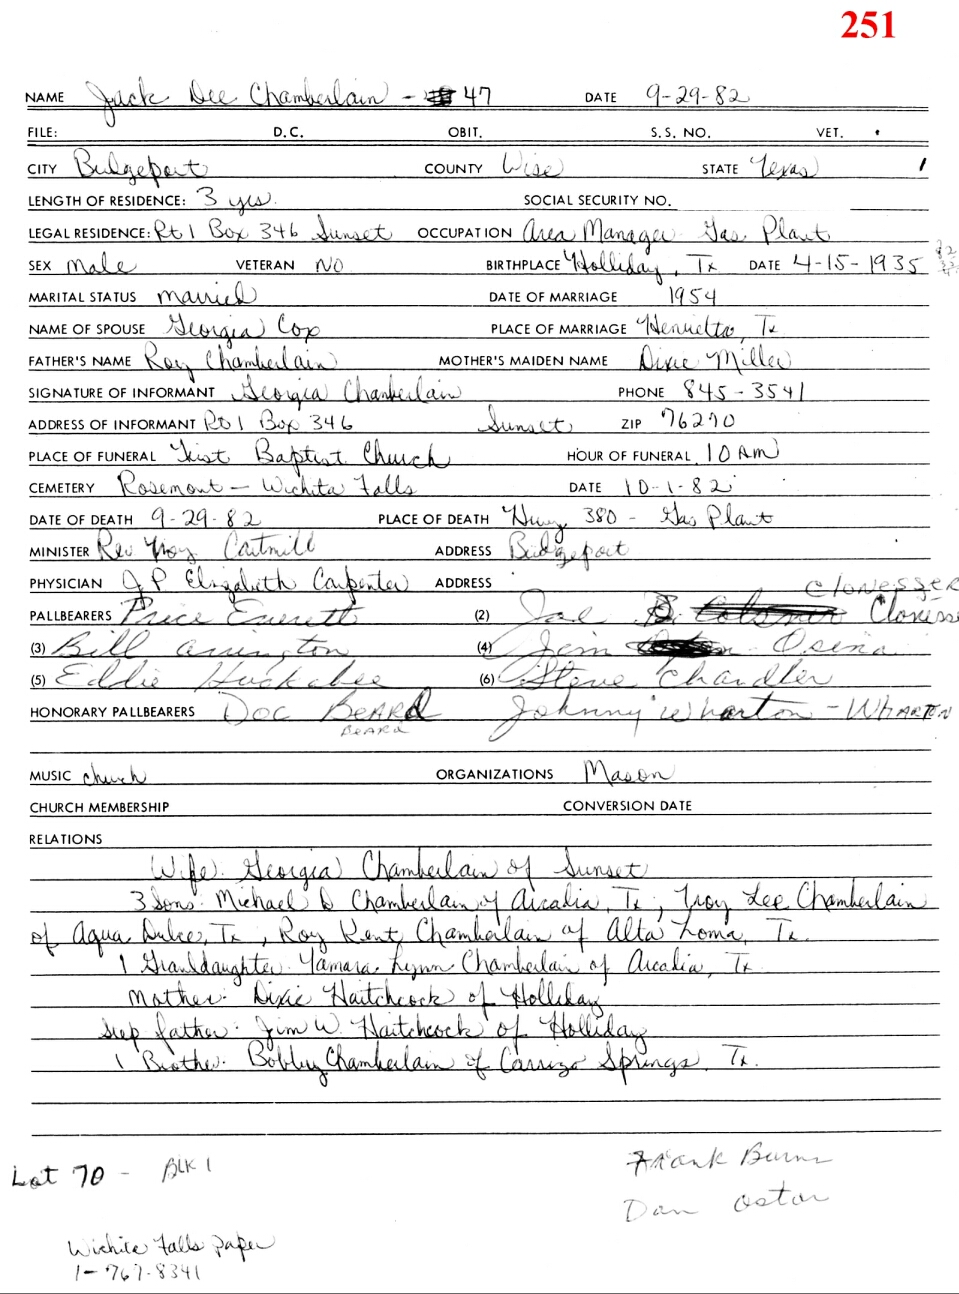 251
NAME Jack Dee Chamberlain - 47 DATE 9-29-82
FILE: D.C. OBIT. S.S. NO. VET.
CITY Bridgeport COUNTY Wise STATE Texas
LENGTH OF RESIDENCE: 3 yrs. SOCIAL SECURITY NO.
LEGAL RESIDENCE: Rt 1 Box 346 Sunset OCCUPATION Area Manager Gas Plant
SEX Male VETERAN NO BIRTHPLACE Holliday, Tx DATE 4-15-1935
MARITAL STATUS married DATE OF MARRIAGE 1954
NAME OF SPOUSE Georgia Cox PLACE OF MARRIAGE Henrietta, Tx
FATHER'S NAME Roy Chamberlain MOTHER'S MAIDEN NAME Dixie Miller
SIGNATURE OF INFORMANT Georgia Chamberlain PHONE 845-3541
ADDRESS OF INFORMANT Rt 1 Box 346 Sunset ZIP 76270
PLACE OF FUNERAL First Baptist Church HOUR OF FUNERAL 10 AM
CEMETERY Rosemont - Wichita Falls DATE 10-1-82
DATE OF DEATH 9-29-82 PLACE OF DEATH Hwy 380 - Gas Plant
MINISTER Rev Troy Cartmill ADDRESS Bridgeport
PHYSICIAN J P Elizabeth Carpenter ADDRESS
PALLBEARERS Price Everett (2) Joe
(3) Bill Arrington (4) Jim Osina
(5) Eddie Huckabee (6) Steve Chandler
HONORARY PALLBEARERS Doc BEARD Johnny Wharton - WHARTON
BEARD
MUSIC church ORGANIZATIONS Mason
CHURCH MEMBERSHIP CONVERSION DATE
RELATIONS
Wife: Georgia Chamberlain of Sunset
3 Sons: Michael D Chamberlain of Arcadia, Tx, Troy Lee Chamberlain
of Agua Dulce, Tx, Roy Kent Chamberlain of Alta Loma, Tx.
1 Granddaughter Tamara Lynn Chamberlain of Arcadia, Tx.
Mother: Dixie Haitchcock of Holliday
Step father: Jim W. Haitchcock of Holliday
1 Brother: Bobby Chamberlain of Carrizo Springs, Tx.
Lot 70 - BLK 1
Frank Burns
Dan
Wichita Falls paper
1-767-8341